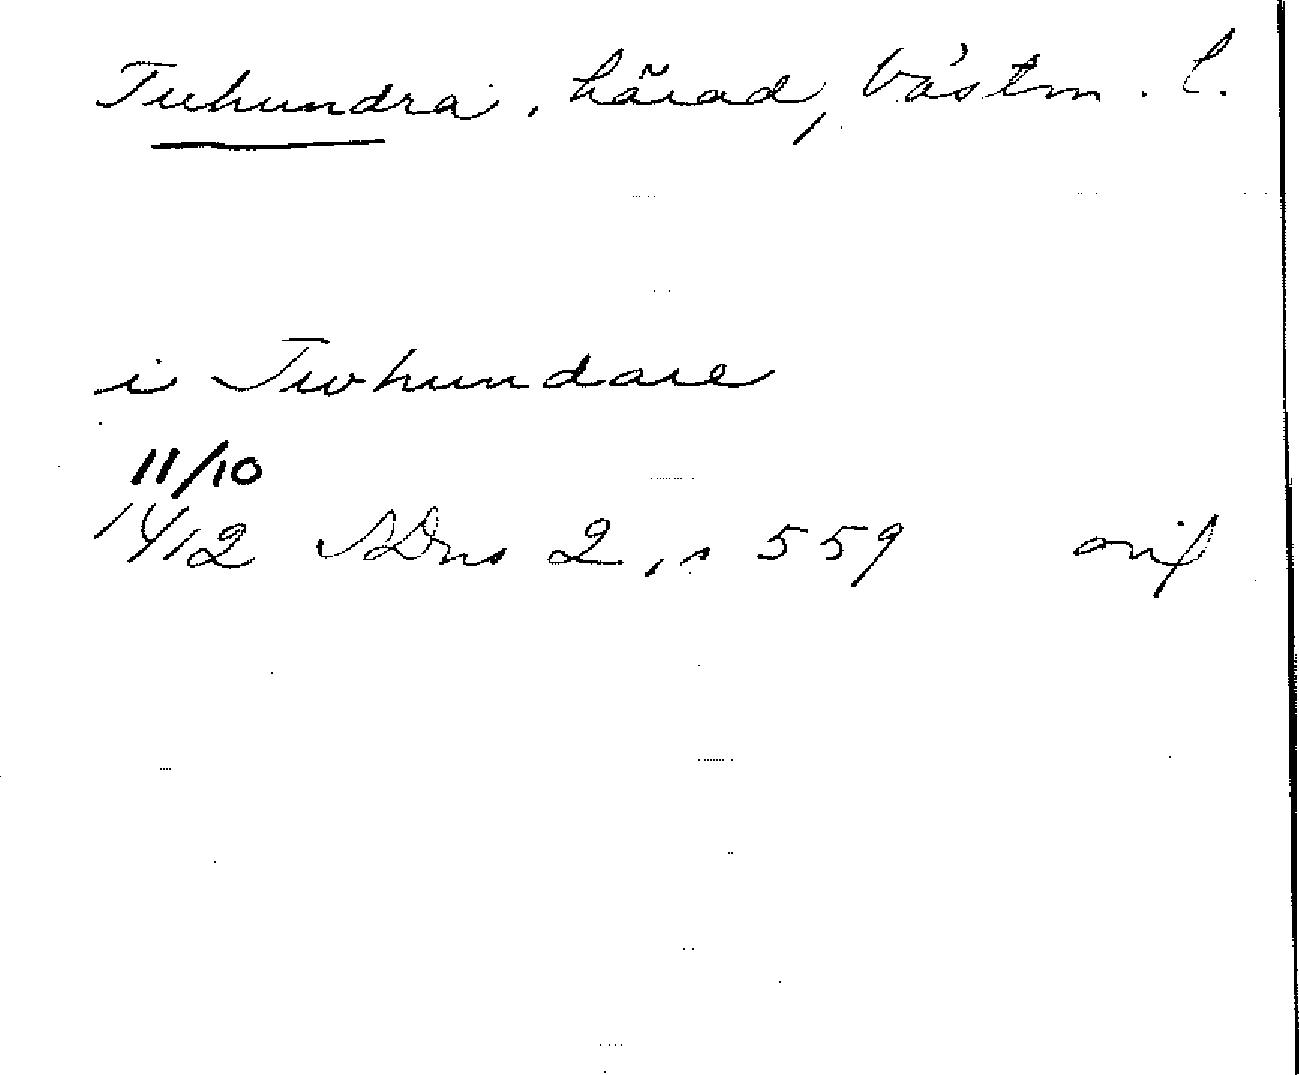 Tuhundra, härad, Västm. l.
i Twhundare
11/10
1412 SDns 2, s 559 orif